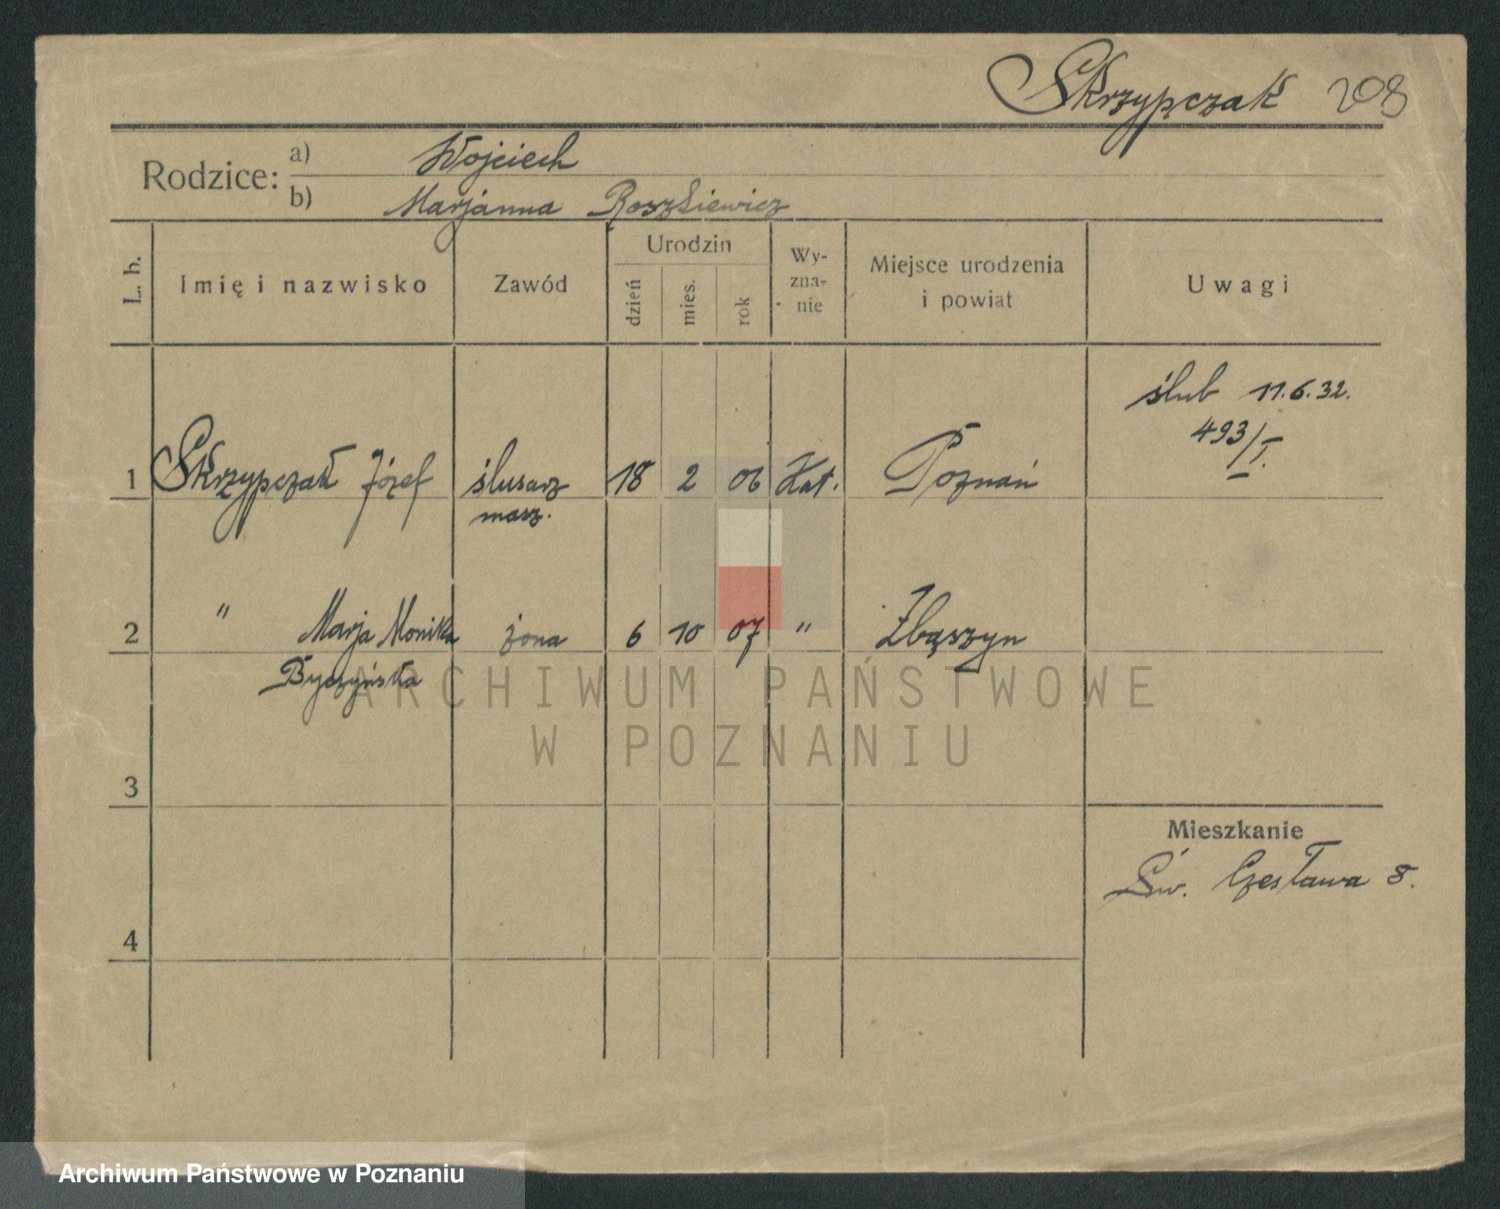 Skrzypczak 208
Rodzice: a) Wojciech
b) Marjanna Roszkiewicz
L. b.
Imię i nazwisko
Zawód
Urodzin
dzień
mies.
rok
Wy-
zna-
nie
Miejsce urodzenia
i powiat
Uwagi
ślub 11.6.32.
493/I.
1 Skrzypczak Józef ślusarz 18 2 06 Kat. Poznań
masz.
2 " Marja Monika żona 6 10 07 " Zbąszyn
Byczyńska
ARCHIWUM PAŃSTWOWE
W POZNANIU
3
Mieszkanie
Św. Czesława 8.
4
Archiwum Państwowe w Poznaniu